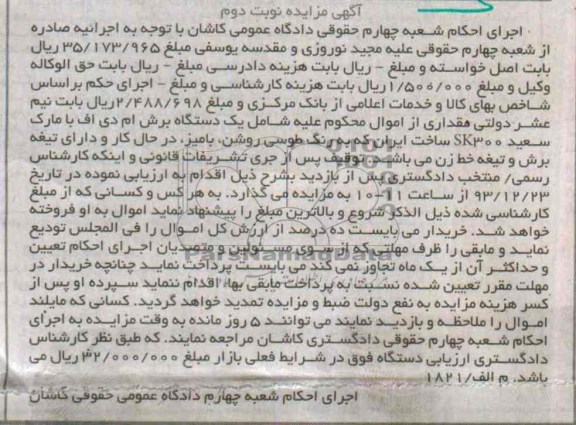 آگهی مزایده نوبت دوم
اجرای احکام شعبه چهارم حقوقی دادگاه عمومی کاشان با توجه به اجرائیه صادره
از شعبه چهارم حقوقی علیه مجید نوروزی و مقدسه یوسفی مبلغ ۳۵/۱۷۳/۹۶۵ ریال
بابت اصل خواسته و مبلغ - ریال بابت هزینه دادرسی مبلغ - ریال بابت حق الوکاله
وکیل و مبلغ ۱/۵۰۰/۰۰۰ ریال بابت هزینه کارشناسی و مبلغ - اجرای حکم براساس
شاخص بهای کالا و خدمات اعلامی از بانک مرکزی و مبلغ ۲/۴۸۸/۶۹۸ ریال بابت نیم
عشر دولتی مقداری از اموال محکوم علیه شامل یک دستگاه برش ام دی اف با مارک
سعید SK۳۰۰ ساخت ایران که به رنگ طوسی روشن، بامیز، در حال کار و دارای تیغه
برش و تیغه خط زن می باشد را توقیف پس از جری تشریفات قانونی و اینکه کارشناس
رسمی/ منتخب دادگستری پس از بازدید بشرح ذیل اقدام به ارزیابی نموده در تاریخ
۹۳/۱۲/۲۳ از ساعت ۱۱-۱۰ به مزایده می گذارد. به هر کس و کسانی که از مبلغ
کارشناسی شده ذیل الذکر شروع و بالاترین مبلغ را پیشنهاد نماید اموال به او فروخته
خواهد شد. خریدار می بایست ده درصد از ارزش کل اموال را فی المجلس تودیع
نماید و مابقی را ظرف مهلتی که از سوی مسئولین و متصدیان اجرای احکام تعیین
و حداکثر آن از یک ماه تجاوز نمی کند می بایست پرداخت نماید چنانچه خریدار در
مهلت مقرر تعیین شده نسبت به پرداخت مابقی بهاء اقدام ننماید سپرده او پس از
کسر هزینه مزایده به نفع دولت ضبط و مزایده تمدید خواهد گردید. کسانی که مایلند
اموال را ملاحظه و بازدید نمایند می توانند ۵ روز مانده به وقت مزایده به اجرای
احکام شعبه چهارم حقوقی دادگستری کاشان مراجعه نمایند. که طبق نظر کارشناس
دادگستری ارزیابی دستگاه فوق در شرایط فعلی بازار مبلغ ۳۲/۰۰۰/۰۰۰ ریال می
باشد. م الف/۱۸۲۱
اجرای احکام شعبه چهارم دادگاه عمومی حقوقی کاشان
ParsNamadData